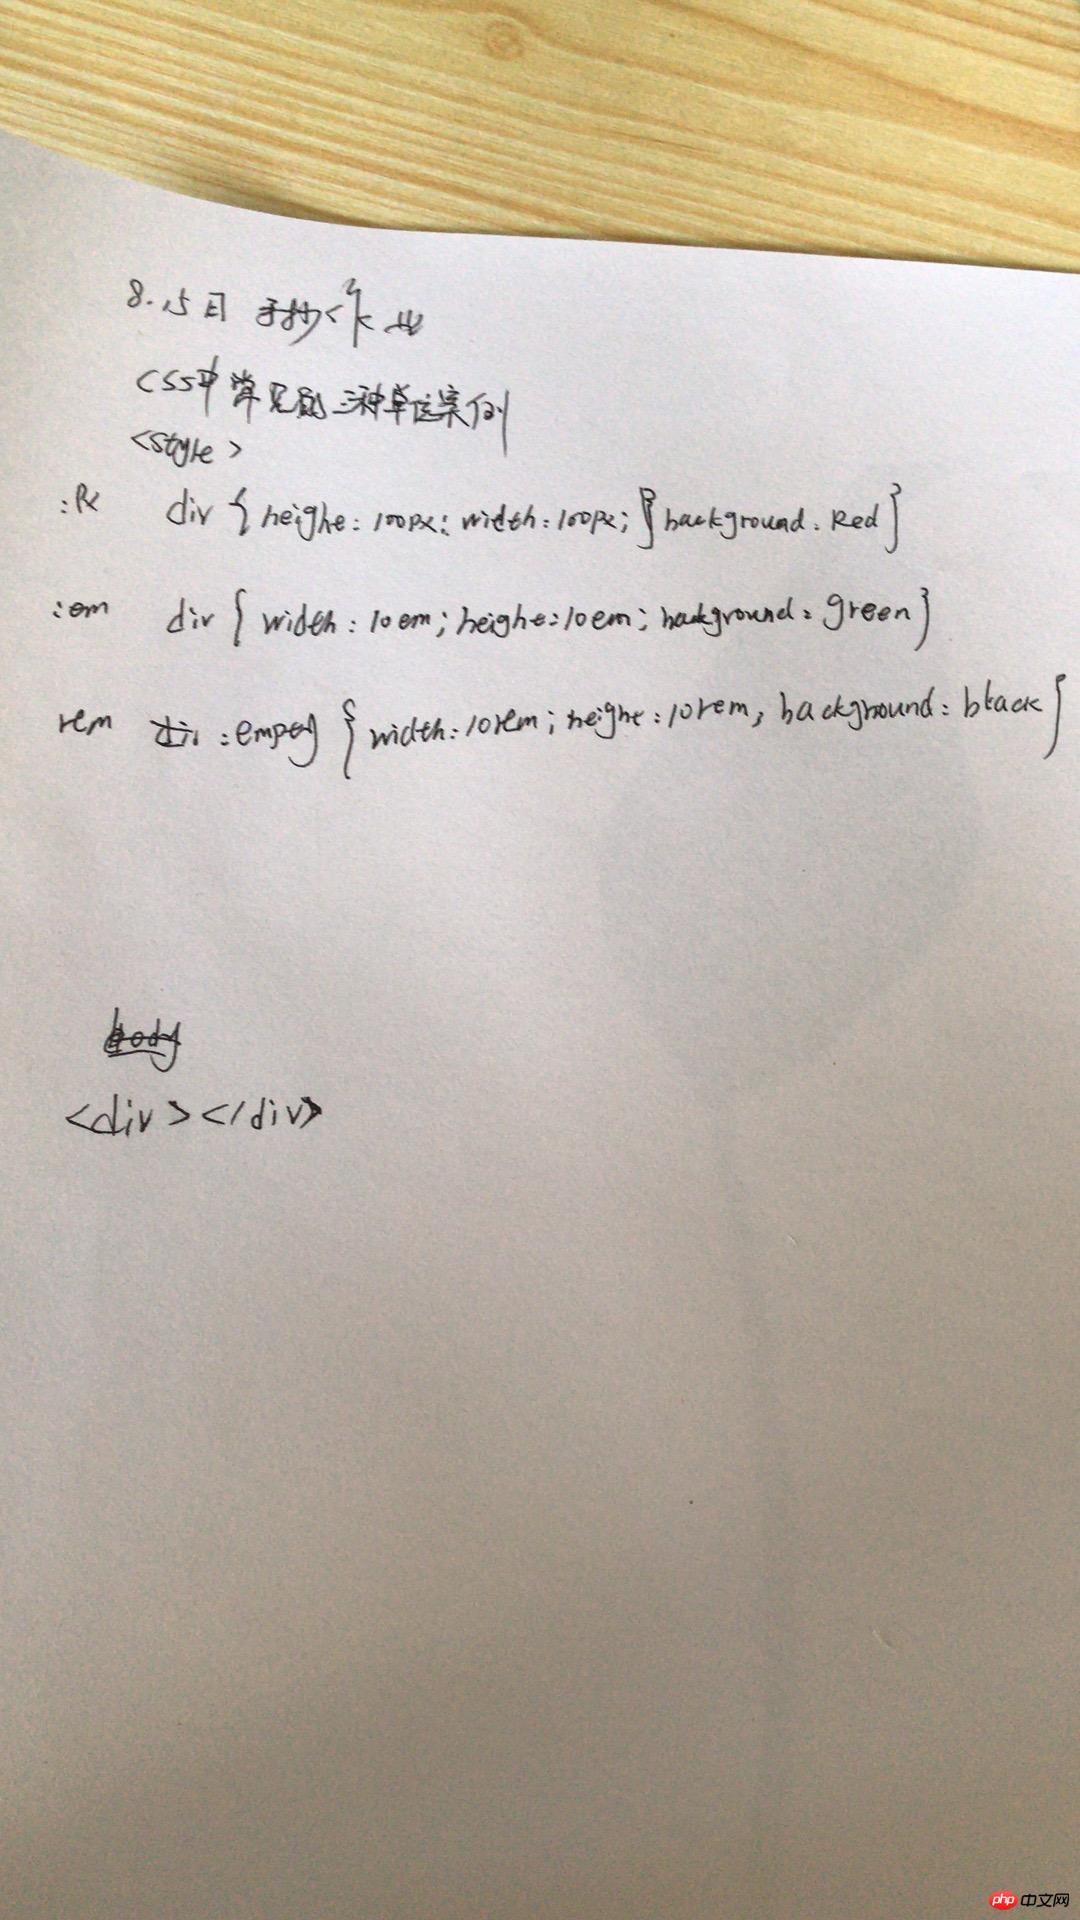 8.15日 手抄作业
CSS中常见的三种单位案例
<style>
:Px div { heighe: 100px; width: 100px; } background: Red }
:em div { width: 10em; heighe: 10em; background: green }
rem div :empty { width: 10rem; heighe: 10rem, background: black }
body
<div></div>
php 中文网